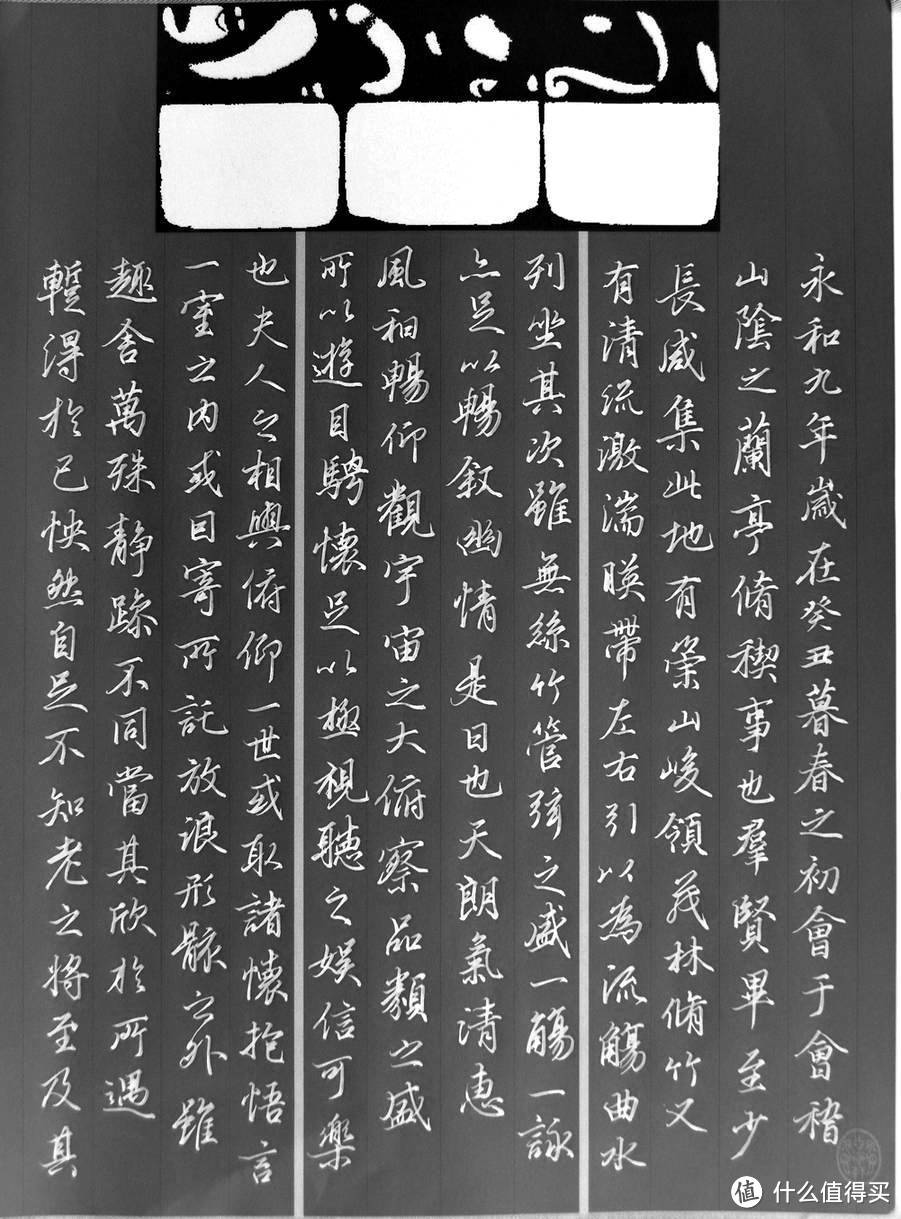 永和九年歲在癸丑暮春之初會于會稽
山陰之蘭亭脩稧事也羣賢畢至少
長咸集此地有崇山峻領茂林脩竹又
有清流激湍暎帶左右引以為流觴曲水
列坐其次雖無絲竹管弦之盛一觴一詠
亦足以暢叙幽情是日也天朗氣清惠
風和暢仰觀宇宙之大俯察品類之盛
所以遊目騁懷足以極視聽之娛信可樂
也夫人之相與俯仰一世或取諸懷抱悟言
一室之內或因寄所託放浪形骸之外雖
趣舍萬殊靜躁不同當其欣於所遇
暫得於己怏然自足不知老之將至及其
值 什么值得买